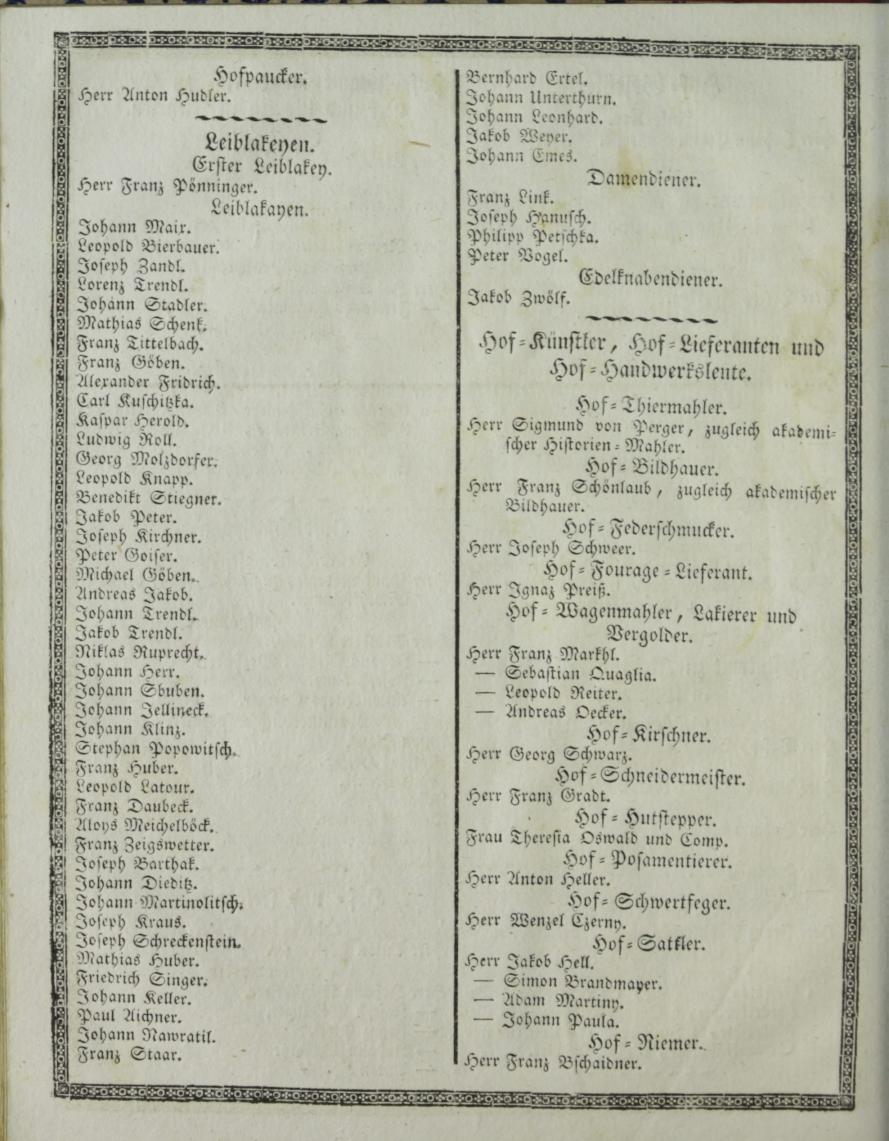 Hofpaucker.
Herr Anton Hudler.
Leiblakeyen.
Erster Leiblakey.
Herr Franz Pönninger.
Leiblakayen.
Johann Mair.
Leopold Bierbauer.
Joseph Zandl.
Lorenz Trendl.
Johann Stadler.
Mathias Schenk.
Franz Tittelbach.
Franz Göben.
Alexander Fridrich.
Carl Kuschitzka.
Kaspar Herold.
Ludwig Roll.
Georg Molzdorfer.
Leopold Knapp.
Benedikt Stiegner.
Jakob Peter.
Joseph Kirchner.
Peter Goiser.
Michael Göben.
Andreas Jakob.
Johann Trendl.
Jakob Trendl.
Niklas Ruprecht.
Johann Herr.
Johann Sbuben.
Johann Jellineck.
Johann Klinz.
Stephan Popowitsch.
Franz Huber.
Leopold Latour.
Franz Daubeck.
Aloys Meichelböck.
Franz Zeigswetter.
Joseph Barthak.
Johann Dieditz.
Johann Martinolitsch.
Joseph Kraus.
Joseph Schreckenstein.
Mathias Huber.
Friedrich Singer.
Johann Keller.
Paul Aichner.
Johann Nawratil.
Franz Staar.
Bernhard Ertel.
Johann Unterthurn.
Johann Leonhard.
Jakob Weyer.
Johann Emes.
Damendiener.
Franz Link.
Joseph Hanusch.
Philipp Petschka.
Peter Vogel.
Edelknabendiener.
Jakob Zwölf.
Hof=Künstler, Hof=Lieferanten und
Hof=Handwerksleute.
Hof=Thiermahler.
Herr Sigmund von Perger, zugleich akademi=
scher Historien=Mahler.
Hof=Bildhauer.
Herr Franz Schönlaub, zugleich akademischer
Bildhauer.
Hof=Federschmucker.
Herr Joseph Schweer.
Hof=Fourage=Lieferant.
Herr Ignaz Preiß.
Hof=Wagenmahler, Lakierer und
Vergolder.
Herr Franz Markhl.
— Sebastian Quaglia.
— Leopold Reiter.
— Andreas Oecker.
Hof=Kirschner.
Herr Georg Schwarz.
Hof=Schneidermeister.
Herr Franz Gradt.
Hof=Hutstepper.
Frau Theresia Oswald und Comp.
Hof=Posamentierer.
Herr Anton Heller.
Hof=Schwertfeger.
Herr Wenzel Czerny.
Hof=Sattler.
Herr Jakob Hell.
— Simon Brandmayer.
— Adam Martiny.
— Johann Paula.
Hof=Riemer.
Herr Franz Bschaidner.